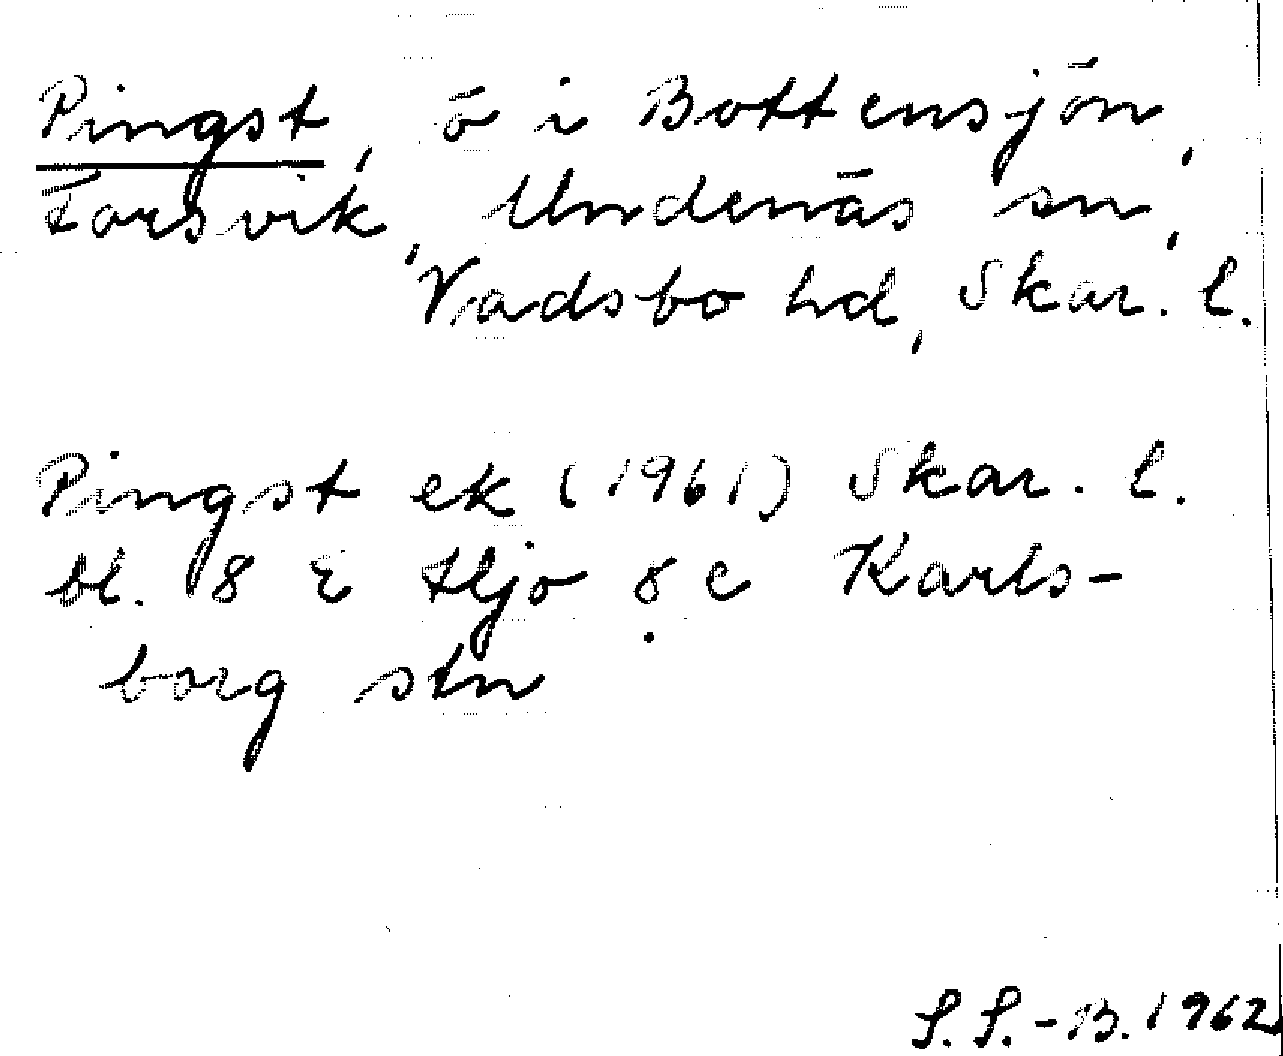 Pingst, ö i Bottensjön,
Forsvik, Undenäs sn,
Vadsbo hd, Skar. l.
Pingst ek (1961) Skar. l.
bl. 8 E Hjo 8 c Karls-
borg stn
S. S.-B. 1962